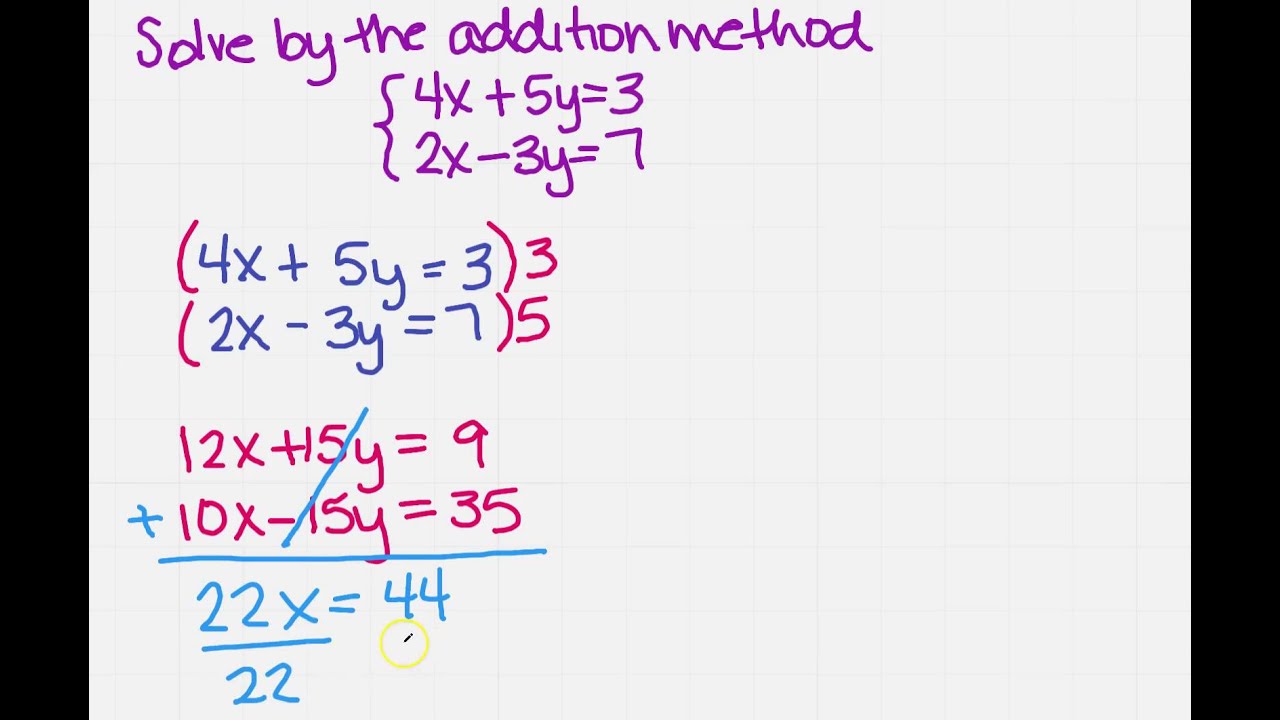 Solve by the addition method
{4x+5y=3
2x-3y=7
(4x+ 5y=3)3
(2x-3y=7)5
12x+15y=9
+10x-15y=35
22x=44
22